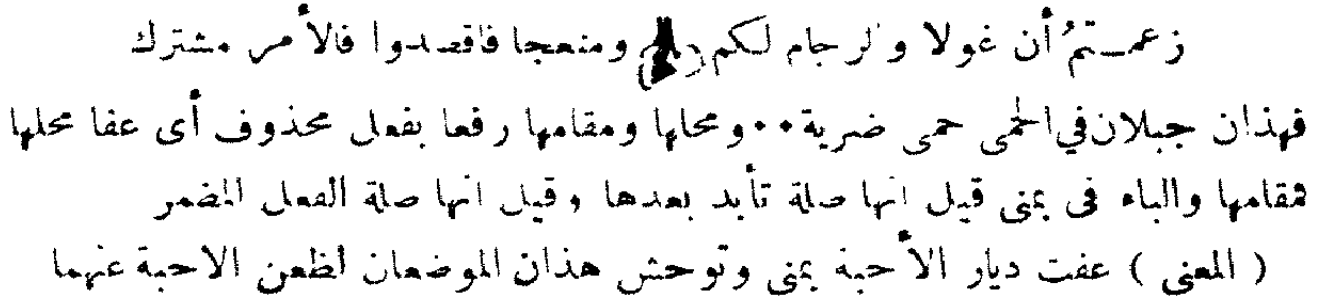 زعمـتمُ أن غولا والرجام لكم ومنعجا فاقصدوا فالأمر مشترك
فهذان جبلان في الحمى حمى ضرية • • ومحلها ومقامها رفعا بفعل محذوف أى عفا محلها
فمقامها والباء فى بمنى قيل انها صلة تأبد بعدها وقيل انها صلة الفعل المضمر
( المعنى ) عفت ديار الأحبة بمنى وتوحش هذان الموضعان لظعن الاحبة عنهما